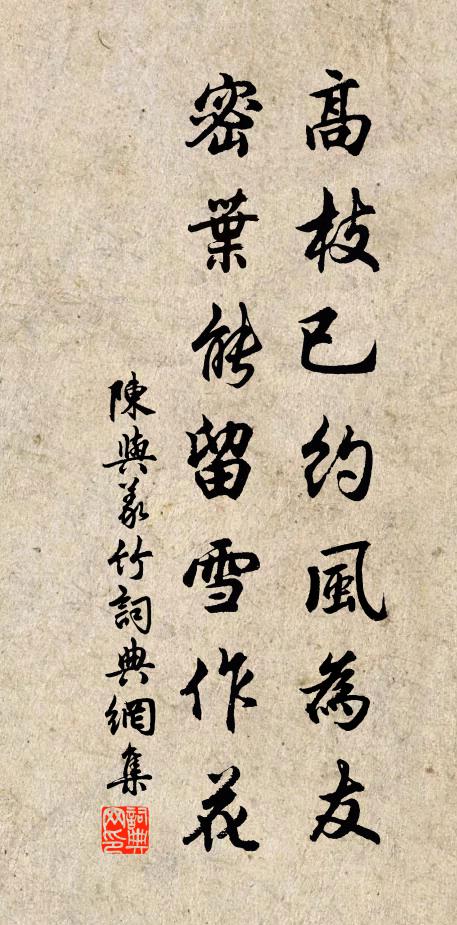 高枝已約風為友
密葉能留雪作花
陳與義竹詞典網集
詞典網印